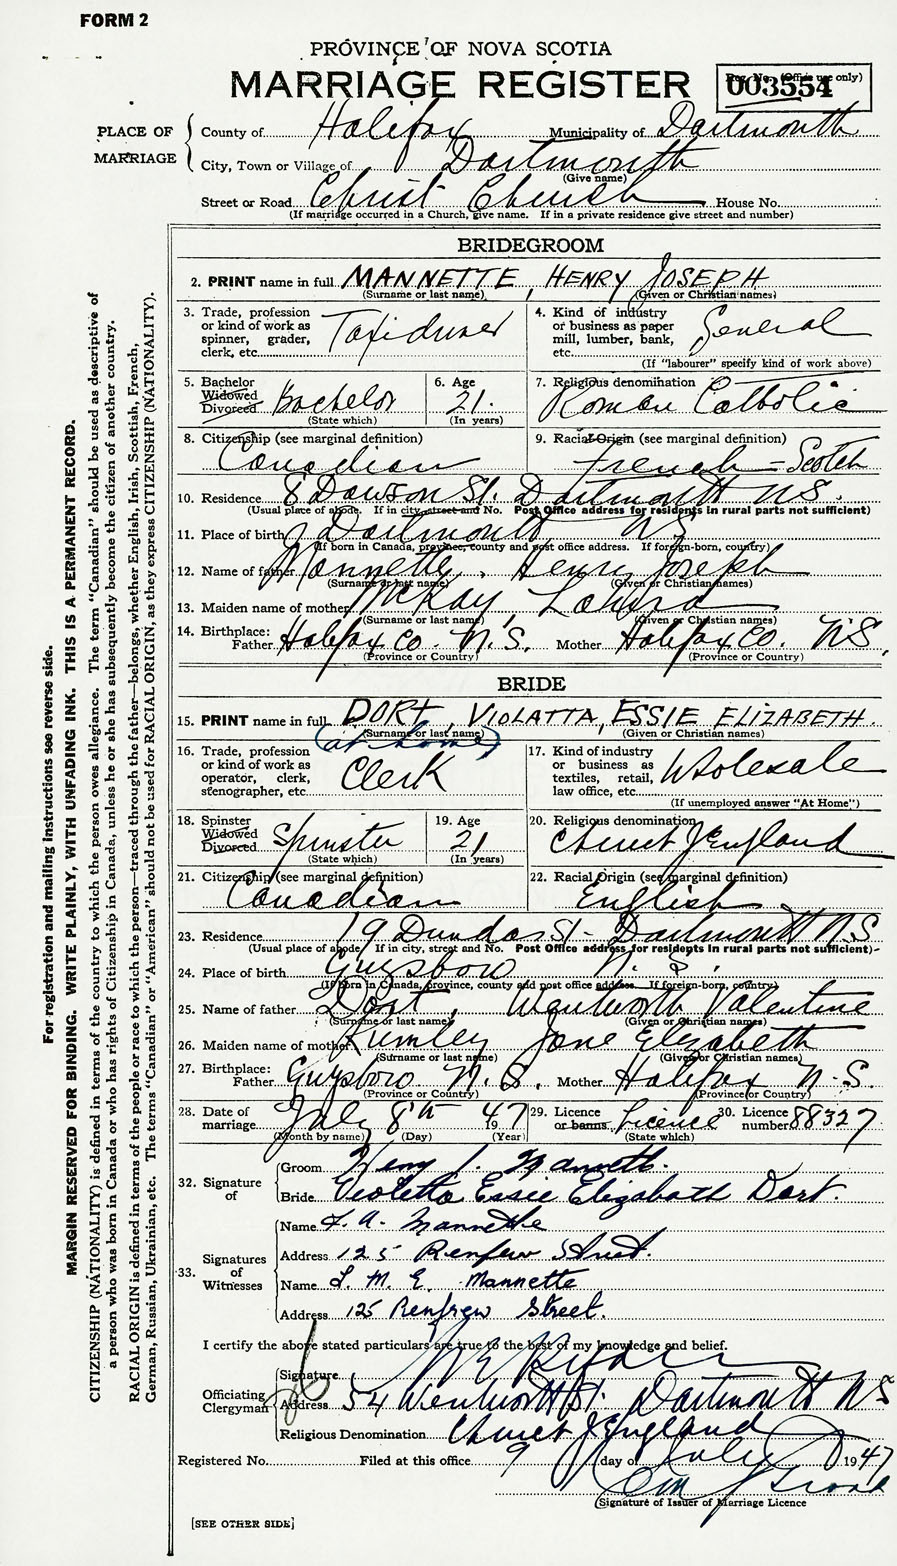 FORM 2
PROVINCE OF NOVA SCOTIA
MARRIAGE REGISTER
Reg. No. (Office use only)
003554
PLACE OF MARRIAGE
County of Halifax Municipality of Dartmouth
City, Town or Village of Dartmouth
(Give name)
Street or Road Christ Church House No.
(If marriage occurred in a Church, give name. If in a private residence give street and number)
BRIDEGROOM
2. PRINT name in full MANNETTE, HENRY JOSEPH
(Surname or last name) (Given or Christian names)
3. Trade, profession or kind of work as spinner, grader, clerk, etc. Taxi driver
4. Kind of industry or business as paper mill, lumber, bank, etc. General
(If "labourer" specify kind of work above)
5. Bachelor Widowed Divorced Bachelor
(State which)
6. Age 21.
(In years)
7. Religious denomination Roman Catholic
8. Citizenship (see marginal definition) Canadian
9. Racial Origin (see marginal definition) French - Scotch
10. Residence 8 Dawson St. Dartmouth NS.
(Usual place of abode. If in city, street and No. Post Office address for residents in rural parts not sufficient)
11. Place of birth Dartmouth NS
(If born in Canada, province, county and post office address. If foreign-born, country)
12. Name of father Mannette, Henry Joseph
(Surname or last name) (Given or Christian names)
13. Maiden name of mother McKay, Laura
(Surname or last name) (Given or Christian names)
14. Birthplace: Father Halifax Co. N.S. Mother Halifax Co. N.S.
(Province or Country) (Province or Country)
BRIDE
15. PRINT name in full DORT, VIOLATTA, ESSIE ELIZABETH.
(Surname or last name) (Given or Christian names)
(at home)
16. Trade, profession or kind of work as operator, clerk, stenographer, etc. Clerk
17. Kind of industry or business as textiles, retail, law office, etc. Wholesale
(If unemployed answer "At Home")
18. Spinster Widowed Divorced Spinster
(State which)
19. Age 21
(In years)
20. Religious denomination Church of England
21. Citizenship (see marginal definition) Canadian
22. Racial Origin (see marginal definition) English
23. Residence 19 Dundas St - Dartmouth NS
(Usual place of abode If in city, street and No. Post Office address for residents in rural parts not sufficient)
24. Place of birth Guysboro N. S.
(If born in Canada, province, county and post office address. If foreign-born, country)
25. Name of father Dort, Wentworth Valentine
(Surname or last name) (Given or Christian names)
26. Maiden name of mother Rumley Jane Elizabeth
(Surname or last name) (Given or Christian names)
27. Birthplace: Father Guysboro N.S. Mother Halifax N.S.
(Province or Country) (Province or Country)
28. Date of marriage July 8th 1947
(Month by name) (Day) (Year)
29. Licence or banns Licence
(State which)
30. Licence number 88327
32. Signature of
Groom Henry J. Mannette.
Bride Violetta Essie Elizabath Dort.
33. Signatures of Witnesses
Name L. A. Mannette
Address 125 Renfrew Street.
Name L. M. E. Mannette
Address 125 Renfrew Street.
I certify the above stated particulars are true to the best of my knowledge and belief.
Officiating Clergyman
Signature
Address 54 Wentworth St. Dartmouth NS
Religious Denomination Church of England
Registered No. Filed at this office 9 day of July 1947
(Signature of Issuer of Marriage Licence
[SEE OTHER SIDE]
For registration and mailing instructions see reverse side.
MARGIN RESERVED FOR BINDING. WRITE PLAINLY, WITH UNFADING INK. THIS IS A PERMANENT RECORD.
CITIZENSHIP (NATIONALITY) is defined in terms of the country to which the person owes allegiance. The term "Canadian" should be used as descriptive of
a person who was born in Canada or who has rights of Citizenship in Canada, unless he or she has subsequently become the citizen of another country.
RACIAL ORIGIN is defined in terms of the people or race to which the person—traced through the father—belongs, whether English, Irish, Scottish, French,
German, Russian, Ukrainian, etc. The terms "Canadian" or "American" should not be used for RACIAL ORIGIN, as they express CITIZENSHIP (NATIONALITY).